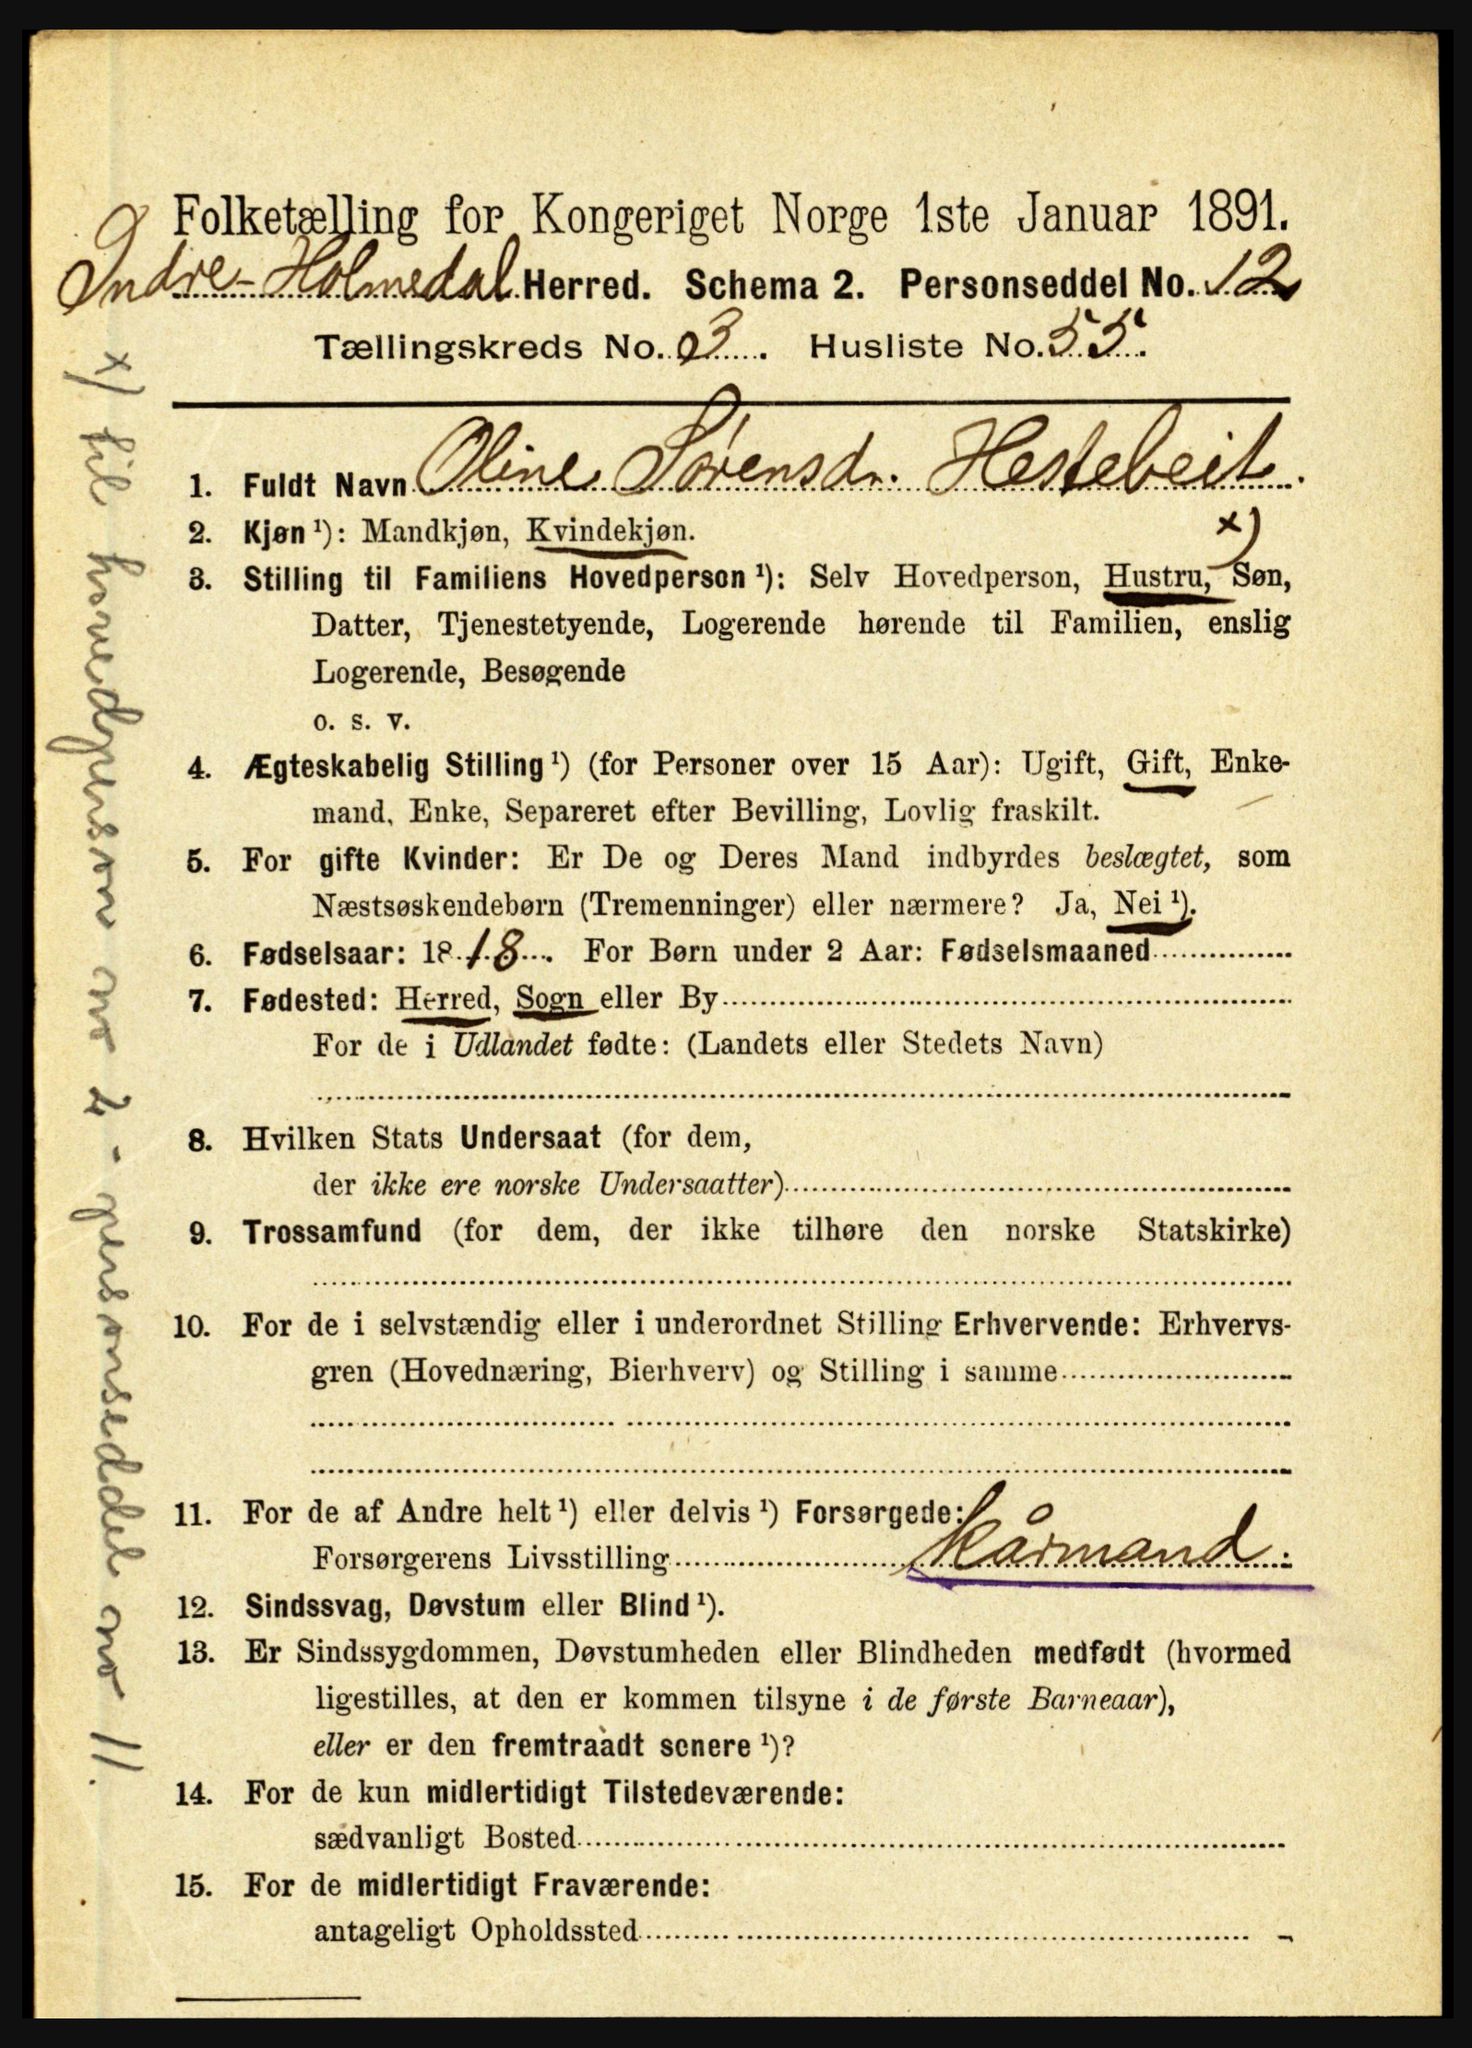 Folketælling for Kongeriget Norge 1ste Januar 1891.
Indre-Holmedal Herred. Schema 2. Personseddel No. 12
Tællingskreds No. 3. Husliste No. 55.
1. Fuldt Navn Oline Sørensdr. Hestebeit.
x)
2. Kjøn ¹): Mandkjøn, Kvindekjøn.
3. Stilling til Familiens Hovedperson ¹): Selv Hovedperson, Hustru, Søn,
Datter, Tjenestetyende, Logerende hørende til Familien, enslig
Logerende, Besøgende
o. s. v.
4. Ægteskabelig Stilling ¹) (for Personer over 15 Aar): Ugift, Gift, Enke-
mand, Enke, Separeret efter Bevilling, Lovlig fraskilt.
5. For gifte Kvinder: Er De og Deres Mand indbyrdes beslægtet, som
Næstsøskendebørn (Tremenninger) eller nærmere? Ja, Nei ¹).
6. Fødselsaar: 1818. For Børn under 2 Aar: Fødselsmaaned
7. Fødested: Herred, Sogn eller By
For de i Udlandet fødte: (Landets eller Stedets Navn)
8. Hvilken Stats Undersaat (for dem,
der ikke ere norske Undersaatter)
9. Trossamfund (for dem, der ikke tilhøre den norske Statskirke)
10. For de i selvstændig eller i underordnet Stilling Erhvervende: Erhvervs-
gren (Hovednæring, Bierhverv) og Stilling i samme
11. For de af Andre helt ¹) eller delvis ¹) Forsørgede:
Forsørgerens Livsstilling Kårmand.
12. Sindssvag, Døvstum eller Blind ¹).
13. Er Sindssygdommen, Døvstumheden eller Blindheden medfødt (hvormed
ligestilles, at den er kommen tilsyne i de første Barneaar),
eller er den fremtraadt senere ¹)?
14. For de kun midlertidigt Tilstedeværende:
sædvanligt Bosted
15. For de midlertidigt Fraværende:
antageligt Opholdssted
x) til hovedperson no 2 - personseddel no 11.